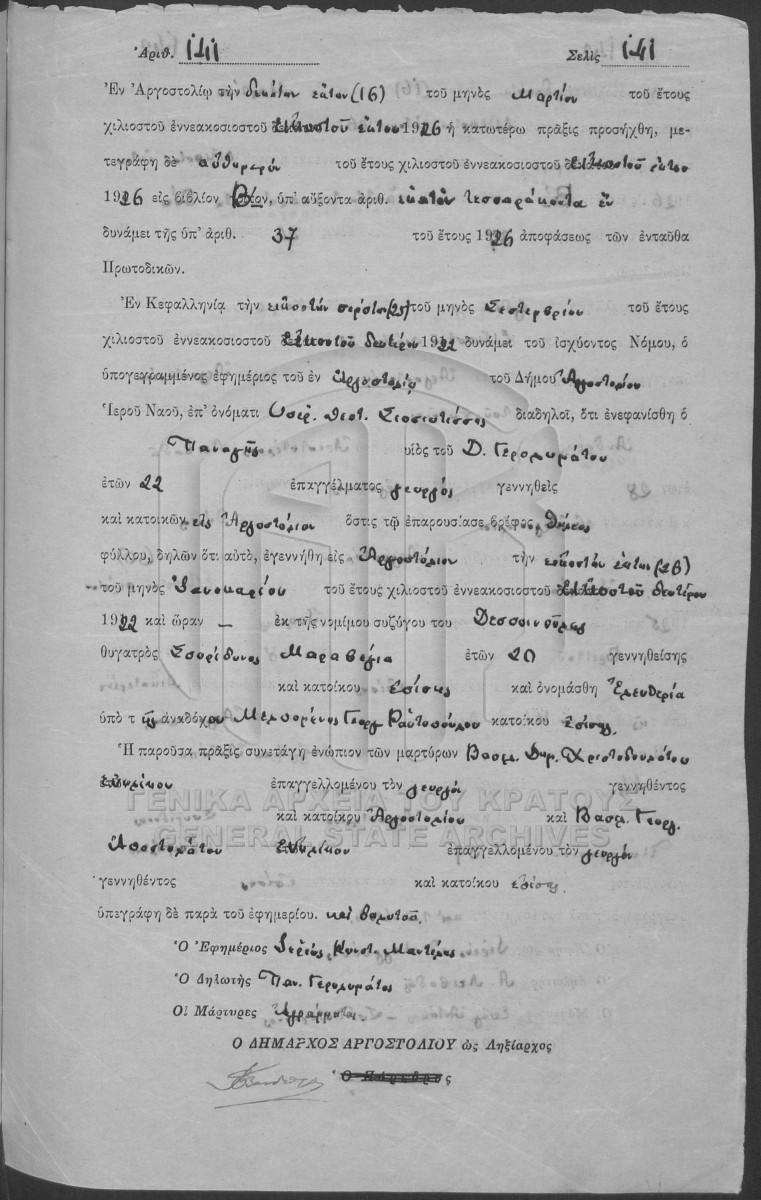 Ἀριθ. 141 Σελὶς 141
Ἐν Ἀργοστολίῳ τὴν δεκάτην ἕκτην (16) τοῦ μηνὸς Μαρτίου τοῦ ἔτους
χιλιοστοῦ ἐννεακοσιοστοῦ εἰκοστοῦ ἕκτου 1926 ἡ κατωτέρω πρᾶξις προσήχθη, με-
τεγράφη δὲ αὐθημερόν τοῦ ἔτους χιλιοστοῦ ἐννεακοσιοστοῦ εἰκοστοῦ ἕκτου
1926 εἰς βιβλίον Βον, ὑπ' αὔξοντα ἀριθ. ἑκατὸν τεσσαράκοντα ἓν
δυνάμει τῆς ὑπ' ἀριθ. 37 τοῦ ἔτους 1926 ἀποφάσεως τῶν ἐνταῦθα
Πρωτοδικῶν.
Ἐν Κεφαλληνίᾳ τὴν εἰκοστὴν πέμπτην (25) τοῦ μηνὸς Σεπτεμβρίου τοῦ ἔτους
χιλιοστοῦ ἐννεακοσιοστοῦ εἰκοστοῦ δευτέρου 1922 δυνάμει τοῦ ἰσχύοντος Νόμου, ὁ
ὑπογεγραμμένος ἐφημέριος τοῦ ἐν Ἀργοστολίῳ τοῦ Δήμου Ἀργοστολίου
Ἱεροῦ Ναοῦ, ἐπ' ὀνόματι Ὑπερ. Θεοτ. Σισσιωτίσσης διαδηλοῖ, ὅτι ἐνεφανίσθη ὁ
Παναγῆς υἱὸς τοῦ Δ. Γερολυμάτου
ἐτῶν 22 ἐπαγγέλματος γεωργὸς γεννηθεὶς
καὶ κατοικῶν εἰς Ἀργοστόλιον ὅστις τῷ ἐπαρουσίασε βρέφος θήλεος
φύλλου, δηλῶν ὅτι αὐτὸ, ἐγεννήθη εἰς Ἀργοστόλιον τὴν εἰκοστὴν ἕκτην (26)
τοῦ μηνὸς Ἰανουαρίου τοῦ ἔτους χιλιοστοῦ ἐννεακοσιοστοῦ εἰκοστοῦ δευτέρου
1922 καὶ ὥραν — ἐκ τῆς νομίμου συζύγου του Δεσποινούλας
θυγατρὸς Σπυρίδωνος Μαραβέγια ἐτῶν 20 γεννηθείσης
καὶ κατοίκου ἐπίσης καὶ ὀνομάσθη Ἐλευθερία
ὑπὸ τῆς ἀναδόχου Μελπομένης Γεωργ. Ραυτοπούλου κατοίκου ἐπίσης.
Ἡ παροῦσα πρᾶξις συνετάγη ἐνώπιον τῶν μαρτύρων Βασιλ. Δημ. Χριστοδουλάτου
ἐνηλίκου ἐπαγγελλομένου τὸν γεωργὸν γεννηθέντος
καὶ κατοίκου Ἀργοστολίου καὶ Βασιλ. Γεωργ.
Ἀποστολάτου ἐνηλίκου ἐπαγγελλομένου τὸν γεωργὸν
γεννηθέντος καὶ κατοίκου ἐπίσης.
ὑπεγράφη δὲ παρὰ τοῦ ἐφημερίου. καὶ δηλωτοῦ.
Ὁ Ἐφημέριος Ἱερεὺς Κωνστ. Μαντέλης
Ὁ Δηλωτὴς Παν. Γερολυμάτος
Οἱ Μάρτυρες Ἀγράμματοι
Ο ΔΗΜΑΡΧΟΣ ΑΡΓΟΣΤΟΛΙΟΥ ὡς Ληξίαρχος
ΓΕΝΙΚΑ ΑΡΧΕΙΑ ΤΟΥ ΚΡΑΤΟΥΣ
GENERAL STATE ARCHIVES